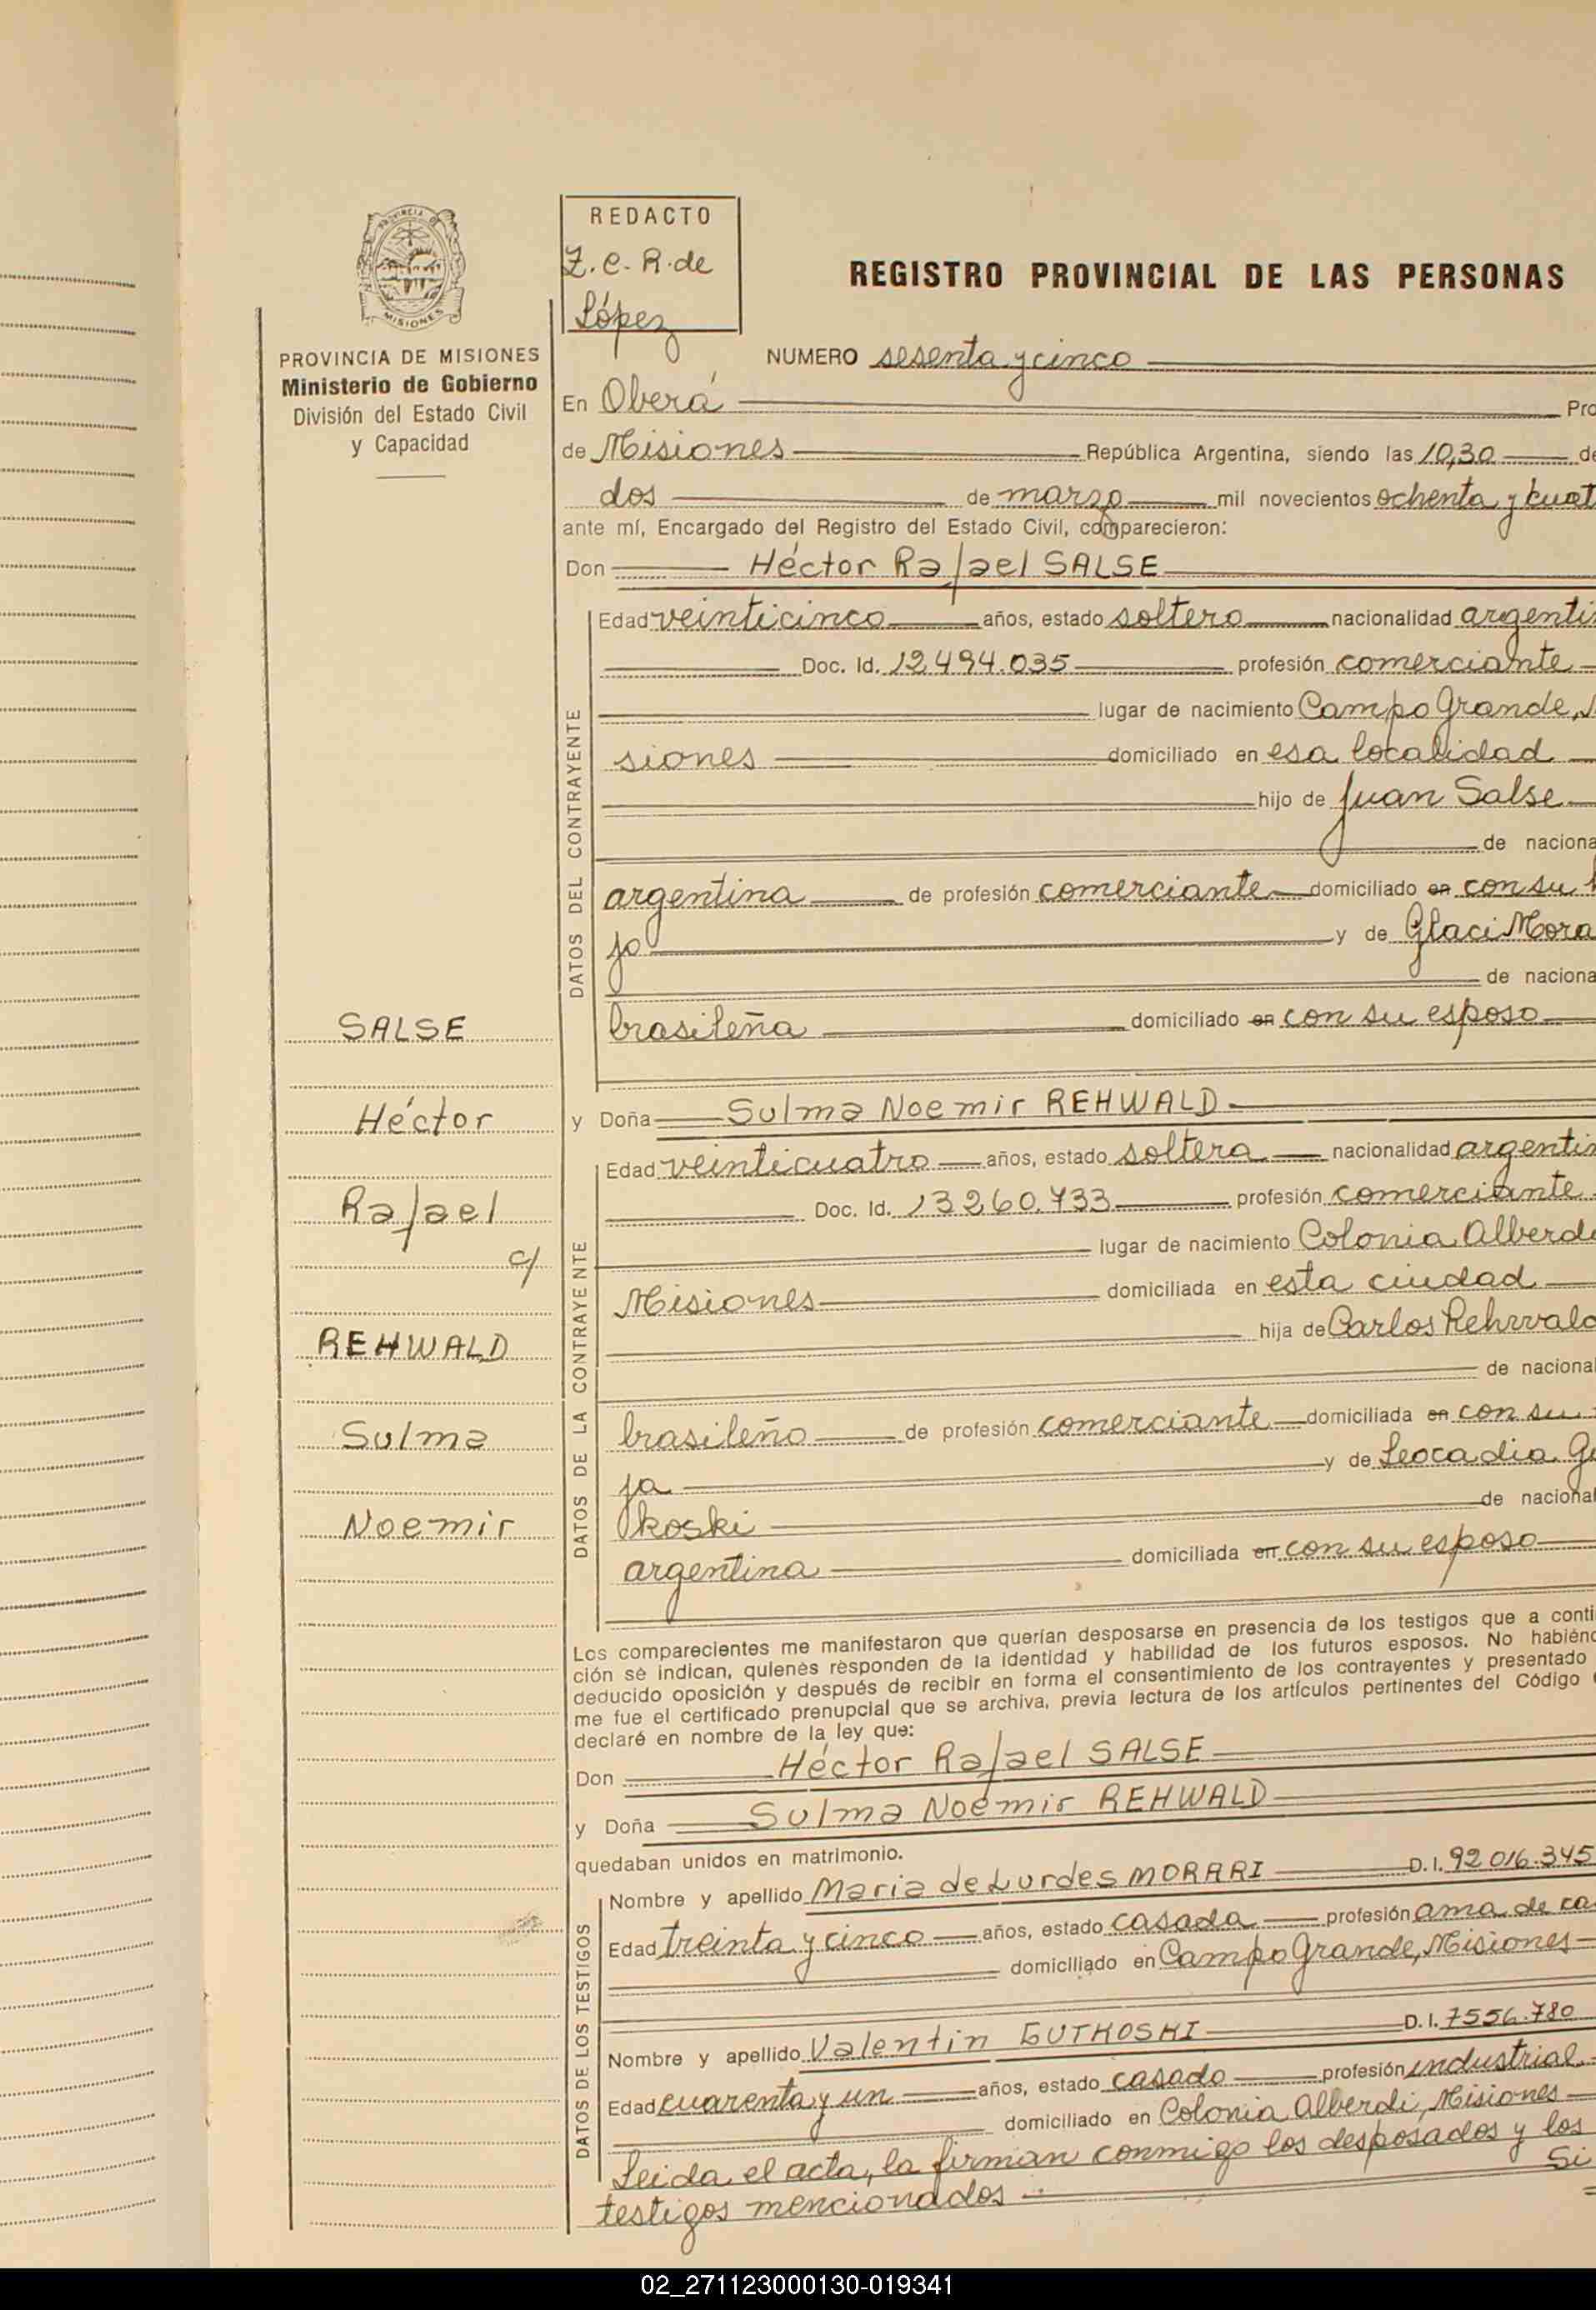 REDACTO
Z. C. R. de
López
PROVINCIA DE MISIONES
PROVINCIA DE MISIONES
Ministerio de Gobierno
División del Estado Civil
y Capacidad
SALSE
Héctor
Rafael
c/
REHWALD
Sulma
Noemir
REGISTRO PROVINCIAL DE LAS PERSONAS
NUMERO sesenta y cinco
En Oberá Pro
de Misiones República Argentina, siendo las 10,30 de
dos de marzo mil novecientos ochenta y cuat
ante mí, Encargado del Registro del Estado Civil, comparecieron:
Don Héctor Rafael SALSE
DATOS DEL CONTRAYENTE
Edad veinticinco años, estado soltero nacionalidad argenti
Doc. Id. 12.494.035 profesión comerciante
lugar de nacimiento Campo Grande,
siones domiciliado en esa localidad
hijo de Juan Salse
de naciona
argentina de profesión comerciante domiciliado en con su
jo y de Glaci Mora
de naciona
brasileña domiciliado en con su esposo
y Doña Sulma Noemir REHWALD
DATOS DE LA CONTRAYENTE
Edad veinticuatro años, estado soltera nacionalidad argentin
Doc. Id. 13260.733 profesión comerciante
lugar de nacimiento Colonia Alberd
Misiones domiciliada en esta ciudad
hija de Carlos Rehwald
de nacional
brasileño de profesión comerciante domiciliada en con su
ja y de Leocadia Gu
koski de nacional
argentina domiciliada en con su esposo
Los comparecientes me manifestaron que querían desposarse en presencia de los testigos que a conti
ción se indican, quienes responden de la identidad y habilidad de los futuros esposos. No habiénd
deducido oposición y después de recibir en forma el consentimiento de los contrayentes y presentado
me fue el certificado prenupcial que se archiva, previa lectura de los artículos pertinentes del Código
declaré en nombre de la ley que:
Don Héctor Rafael SALSE
y Doña Sulma Noemir REHWALD
quedaban unidos en matrimonio.
DATOS DE LOS TESTIGOS
Nombre y apellido Maria de Lurdes MORARI D.I. 92016.345
Edad treinta y cinco años, estado casada profesión ama de ca
domiciliado en Campo Grande, Misiones
Nombre y apellido Valentin GUTKOSKI D.I. 7556.780
Edad cuarenta y un años, estado casado profesión industrial
domiciliado en Colonia Alberdi, Misiones
Leida el acta, la firman conmigo los desposados y los
testigos mencionados Si
02_271123000130-019341